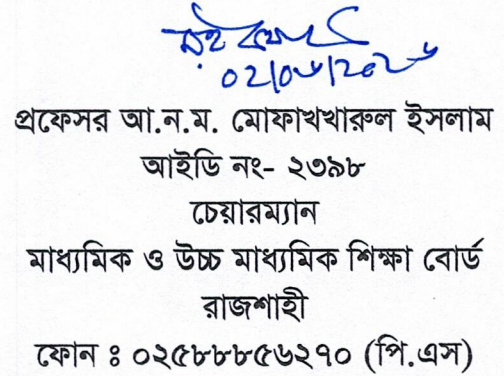 ০২/০৬/২০২৬
প্রফেসর আ.ন.ম. মোফাখখারুল ইসলাম
আইডি নং- ২৩৯৮
চেয়ারম্যান
মাধ্যমিক ও উচ্চ মাধ্যমিক শিক্ষা বোর্ড
রাজশাহী
ফোন ঃ ০২৫৮৮৮৫৬২৭০ (পি.এস)